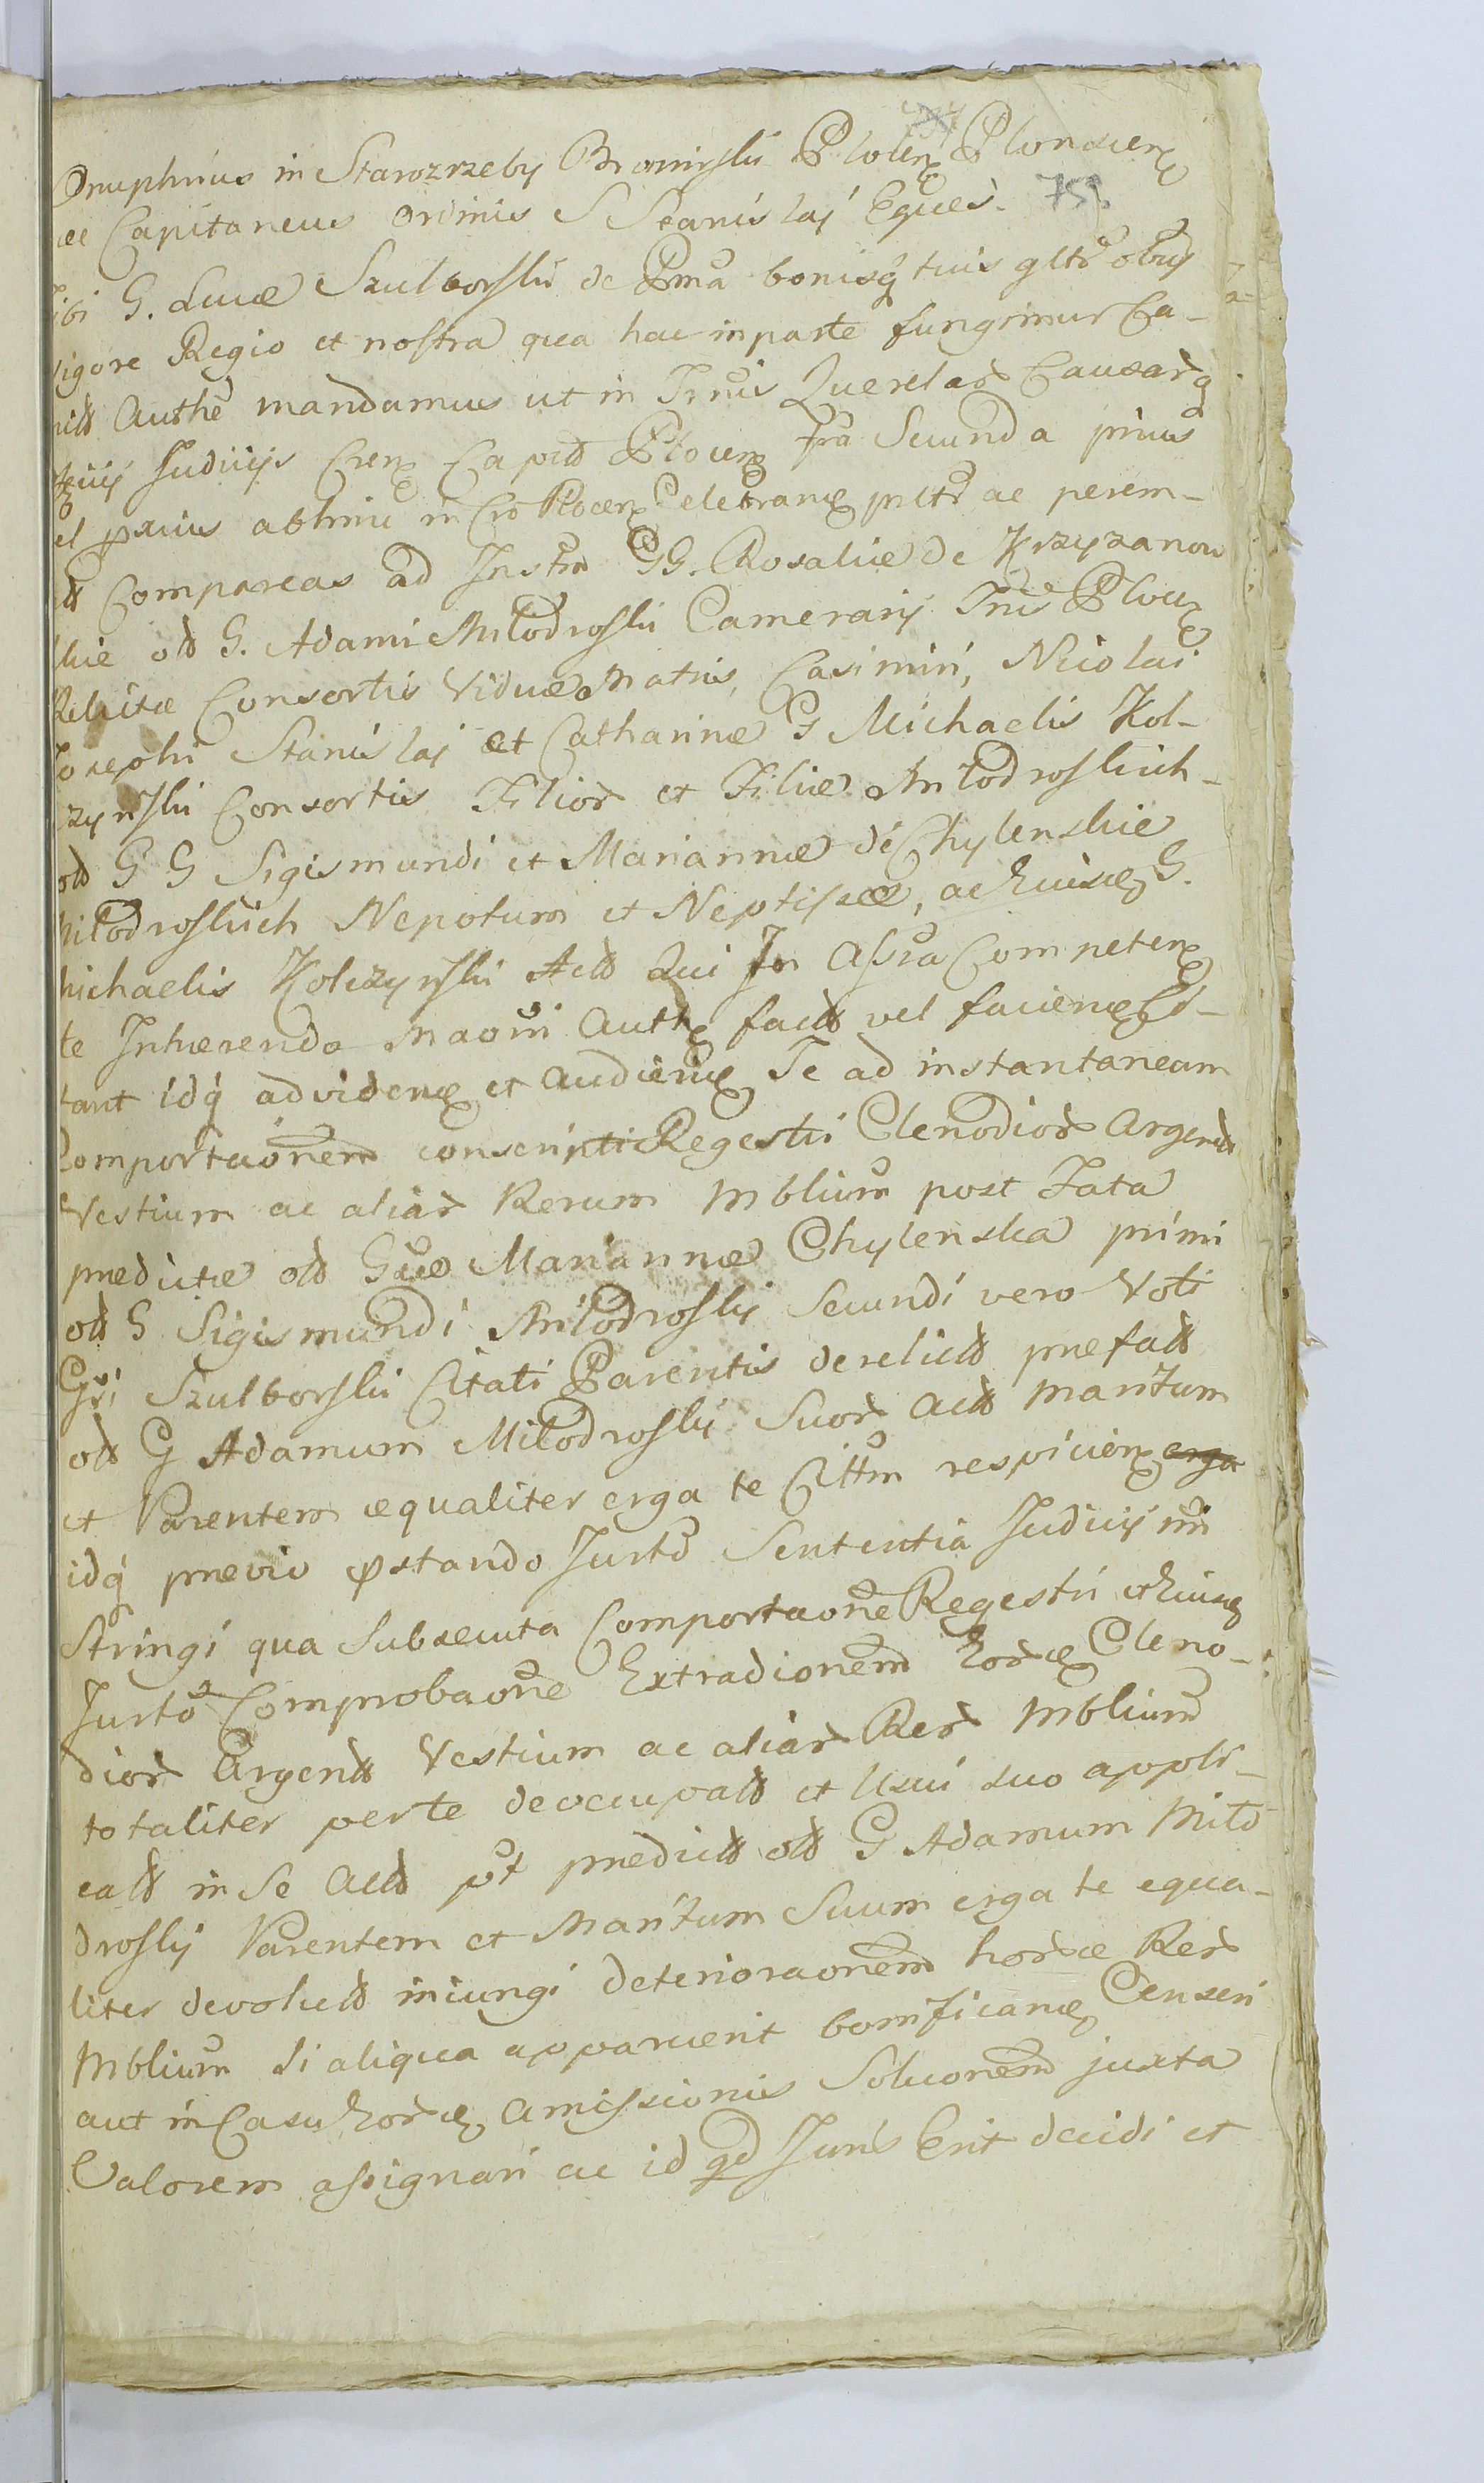 Onuphrius in Starozrzeby Bromirski Plocen Plonscen
ac Capitaneus Ordinis S Stanislai Eques. 759
Tibi G. Lucæ Szulborski de Pma bonisq tuis gltr obvij
Vigore Regio et nostra qua hac in parte fungimur Ca-
Authe mandamus ut in Trnis Querelar Causarq
Judicijs Cren Capit Plocen fra Secunda prius
vel pxius abhinc in Cro Plocen Celebran pnltr ac perem-
Compareas ad Instm GG. Rosaliæ de Krzyzanow
skie olt G. Adami Miłodroski Camerarij Tris Ploc
Relictæ Consortis Viduæ Matris, Casimiri, Nicolai
Josephi Stanislai et Catharinæ G Michaelis Kol-
czynski Consortis Filior et Filiæ Miłodroskich-
olt G G Sigismundi et Mariannæ de Chylenskie
Miłodroskich Nepotum et Neptissæ, ac Eius G.
Michaelis Kolczynski Act Qui In Assa Competen
te Inhærendo Maom Auth fact vel facien Ci-
tant idq ad viden et audien Te ad instantaneam
Comportaonem conscripti Regestri Clenodior Argent
Vestium ac aliar Rerum Mblium post Fata
predictæ olt Gæ Mariannæ Chylenska primi
olt G Sigismundi Miłodroskij Secundi vero Voti
Gsi Szulborski Citati Parentis derelict prefatt
olt G Adamum Miłodroskij Suor Act Maritum
et Parentem æqualiter erga te Cittm respicien erga
idq prævio pstando Jurto Sententia Judicij nri
Stringi qua Subsecuta Comportaone Regestri et Eius
Jurto Comprobaone Extradionem Eor Cleno-
dior Argent Vestium ac aliar Rer Mblium
totaliter per te deoccupatt et Usui suo appli-
catt in Se Act pt predict olt G Adamum Miło
droskij Parentem et Maritum Suum erga te equa-
liter devolut iniungi deterioraonem horce Rer
Mblium Si aliqua apparuerit bonifican Censeri
aut in Casu Eor Amissionis Soluonem juxta
Valorem assignari ac id qd Juris Erit decidi et